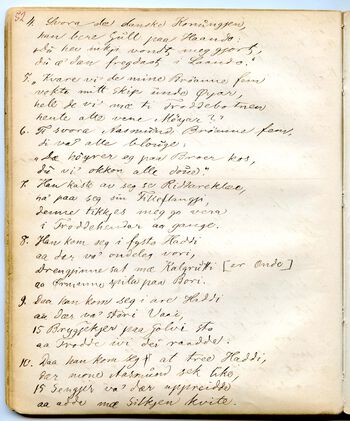 52
4. Svora dæ danske Konungjen,
han bere Gull paa Haando:
"du hev inkje vondt meg gjort,
du æ dær frægdast i Lando."
5. "Kvare vi de mine Brönne fem
vokte mitt Skip unde Øyar,
hell de vi mæ ti Troddebotnen
hente alle vene Möyar?"
6. Ti svora Aasmunds Brönne fem,
di va' alle blouge:
"Dæ höyrer eg paa Broer kos,
du vi' okkon alle doue"
7. Han kaste av seg se Riddareklæe,
va' paa seg sin
denne tikkjes meg go vera
i Troddehendar aa gange.
8. Han kom seg i fysto Haddi
aa dær va' ondeleg vori,
Drengjinne sat mæ [er Onde]
aa Ormanne spila paa Bori.
9. Daa han kom seg i are Haddi
aa dær va' stori Vaai,
15 Bryggjekjer paa Golvi sto
aa Trodde ivi dei raadde.
10. Daa han kom seg at tree Haddi,
dær mone Aasmund sek like,
15 Sengjer va' dær uppreidde
aa adde mæ Silkjen kvite.